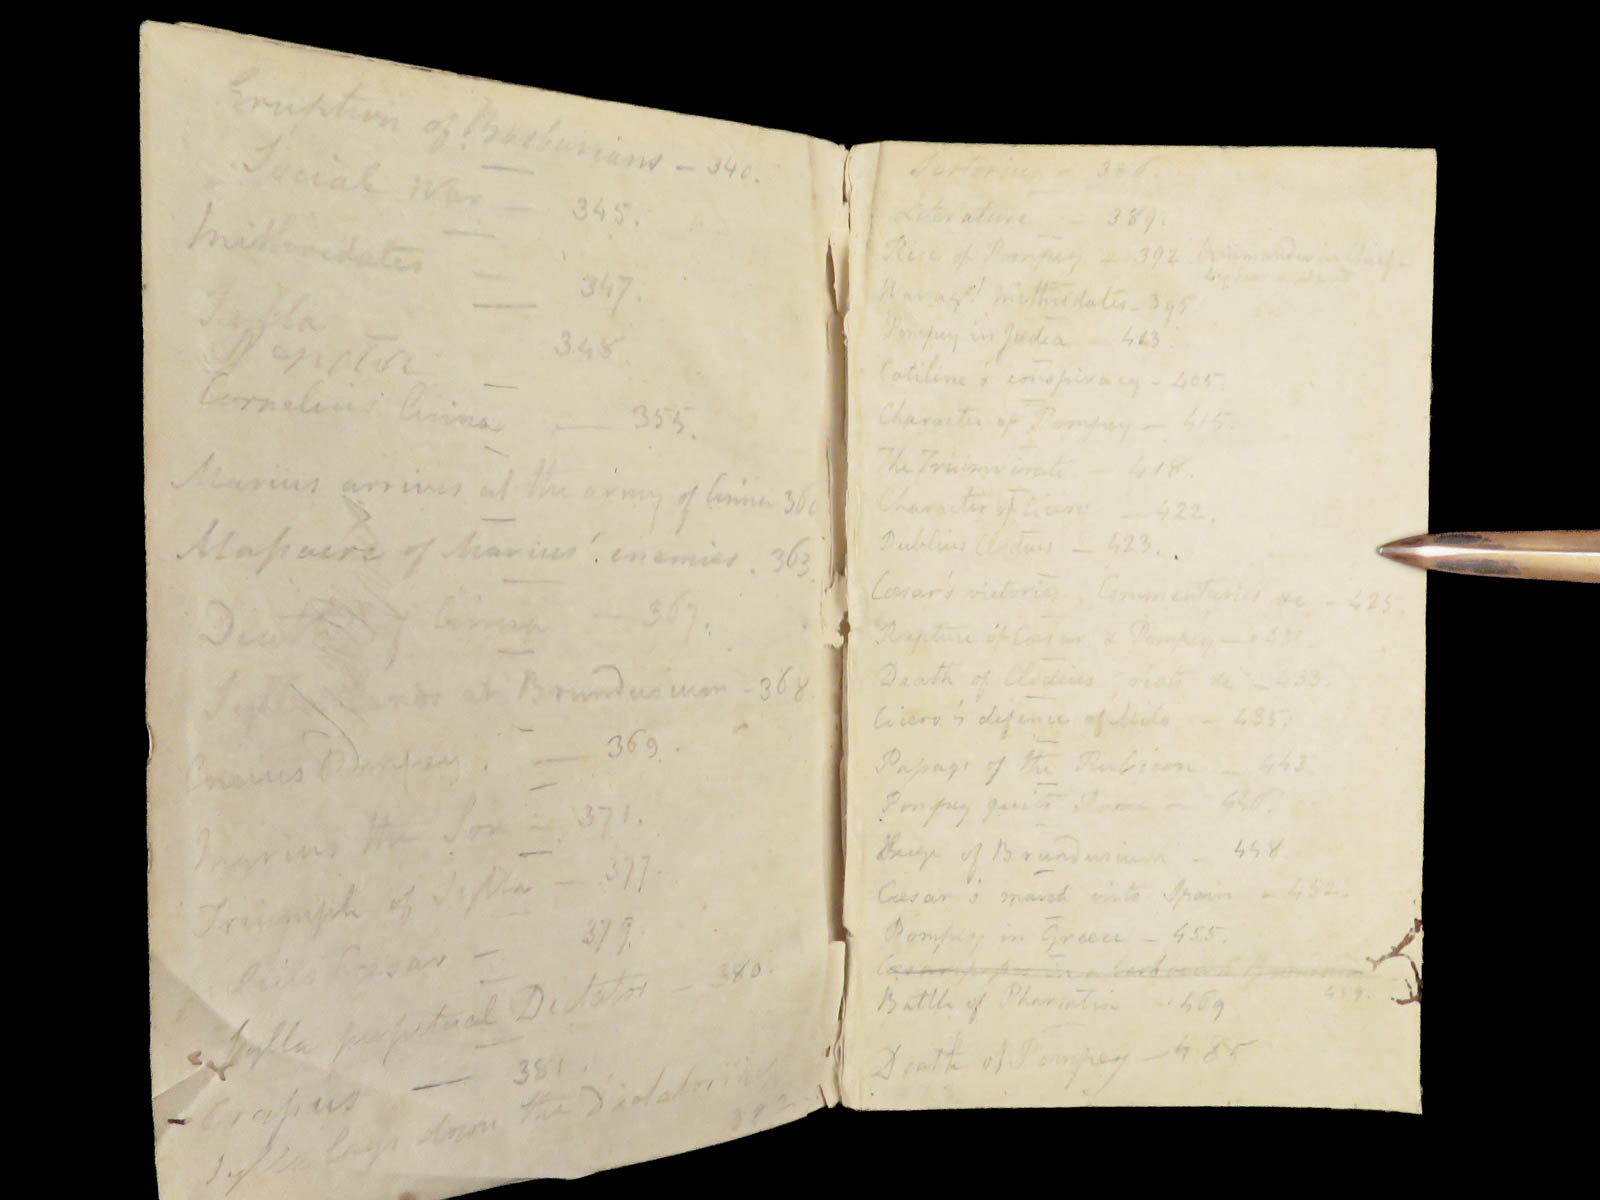 Eruption of Barbarians — 340.
Social War — 345.
Mithridates — 347.
Sylla
348.
Cornelius Cinna — 355.
Marius arrives at the army of Cinna 360
Massacre of Marius' enemies. 363
Death of Cinna — 367.
Sylla lands at Brundusium - 368
Cnaeus Pompey. — 369.
Marius the Son — 371.
Triumph of Sylla — 377.
Caesar — 379.
Sylla perpetual Dictator — 380.
Crassus — 381.
Sylla lays down the Dictatorship
Sertorius — 386.
Literature — 389.
Rise of Pompey — 392 Commander in Chief -
Mithridates - 395
Pompey in Judea — 403.
Catiline's conspiracy - 405
Character of Pompey — 415.
The Triumvirate — 418.
Character of Cicero — 422.
Publius Clodius — 423.
Cæsar's victories, Commentaries &c - 425
Rupture of Cæsar & Pompey —
Death of Clodius, riots &c — 433.
Cicero's defence of Milo — 435.
Passage of the Rubicon — 443
Pompey quits Rome — 446.
Siege of Brundusium — 448.
Cæsar's march into Spain — 452.
Pompey in Greece — 455.
459.
Battle of Pharsalia - 469
Death of Pompey — 485